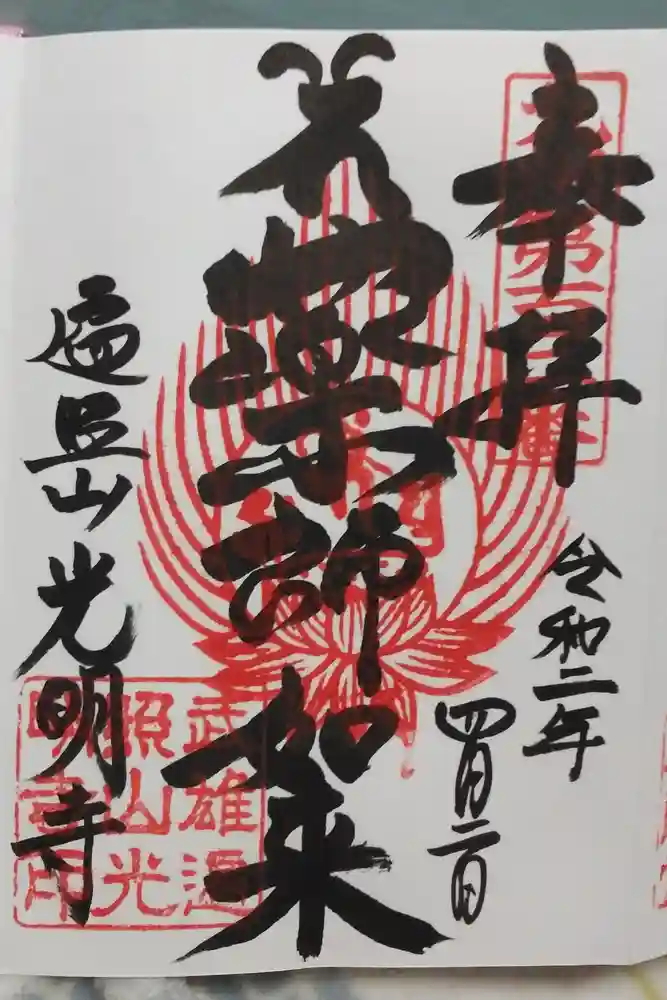 奉拝
令和二年
四月二日
薬師如来
遍照山光明寺
武雄遍
照山光
明寺印